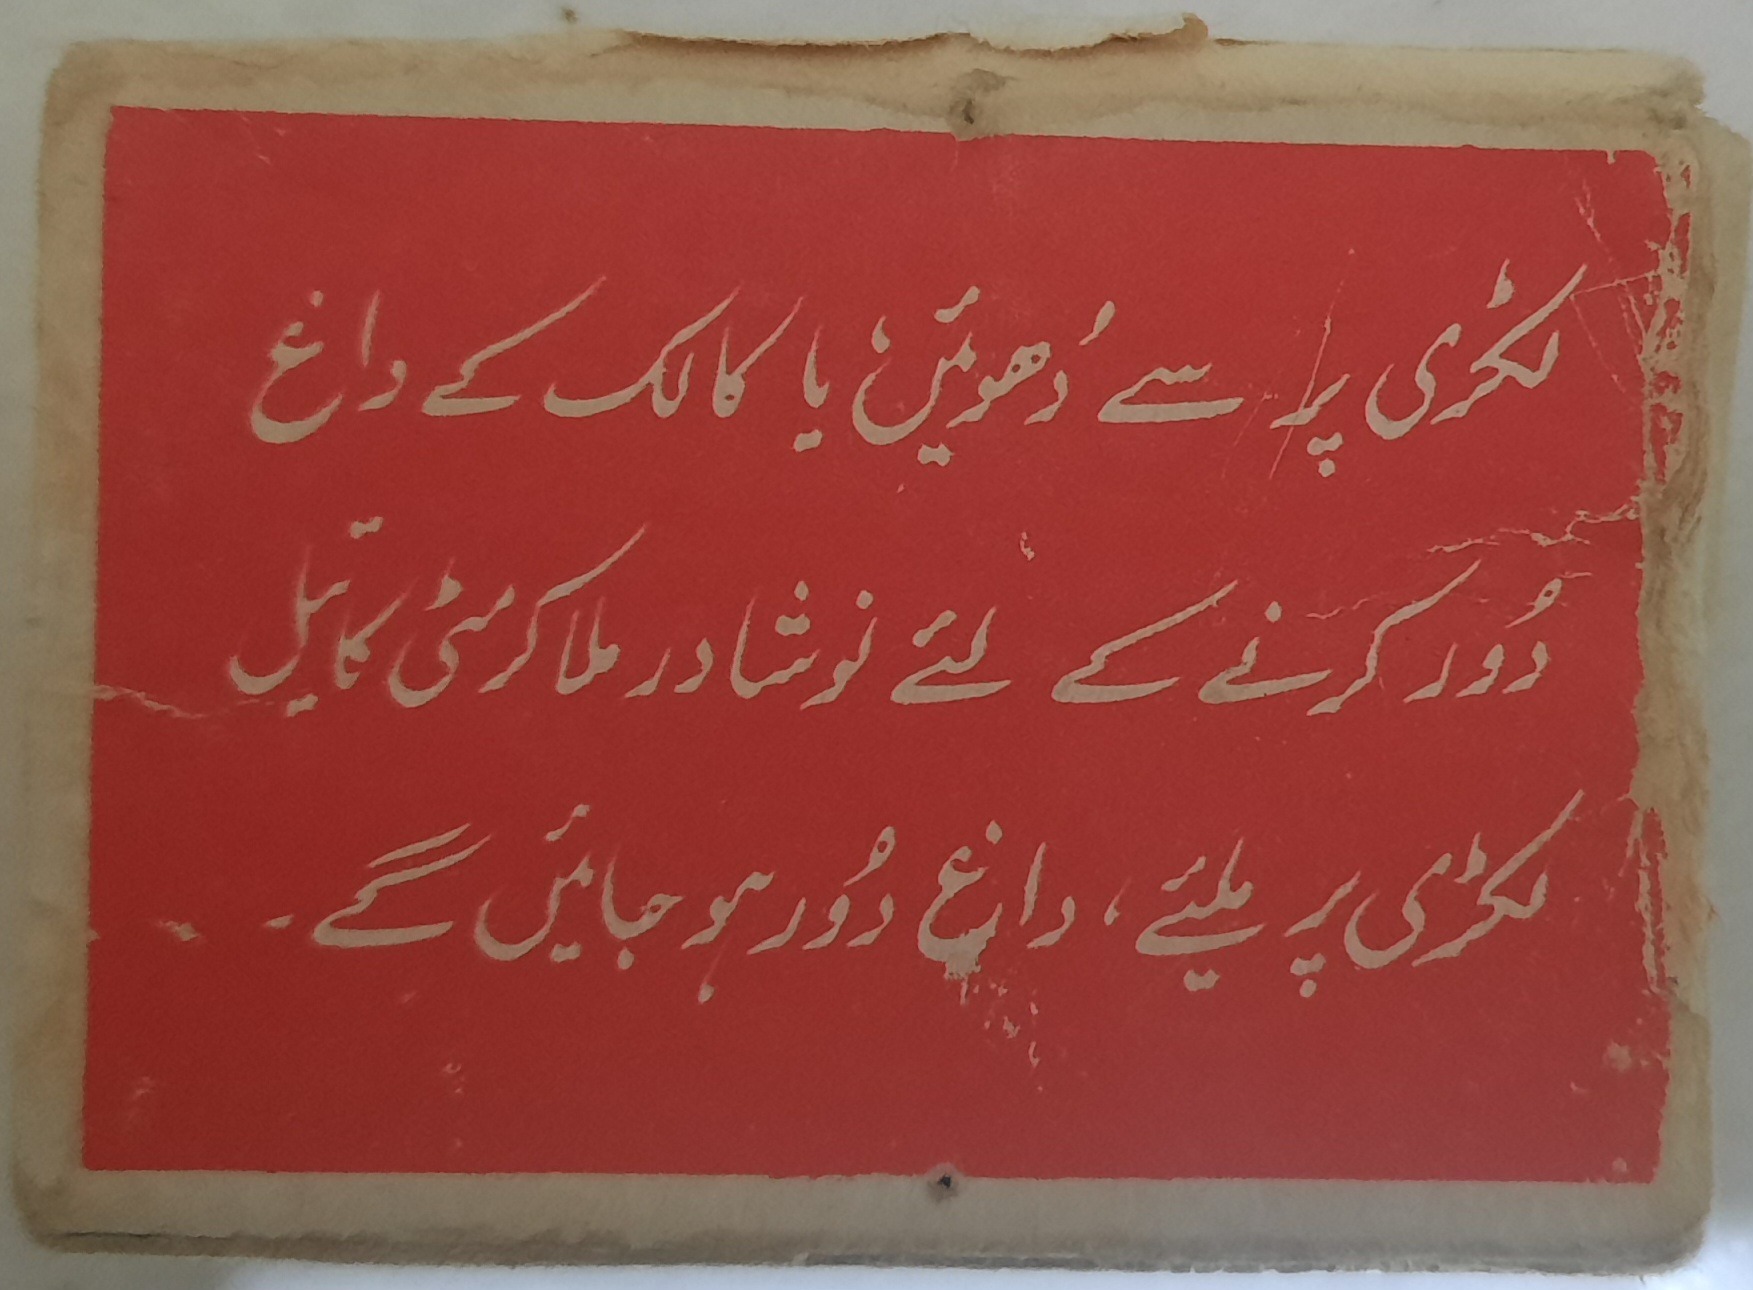 لکڑی پر سے دُھوئیں یا کالک کے داغ
دُور کرنے کے لئے نوشادر ملا کر مٹی کا تیل
لکڑی پر ملیئے، داغ دُور ہو جائیں گے۔